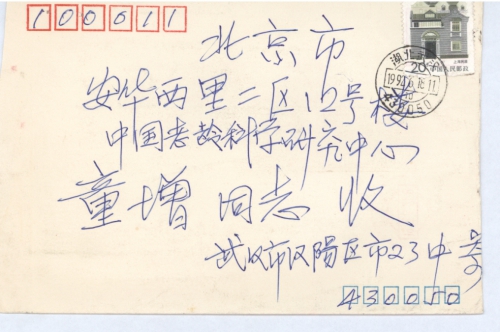 100011
北京市
安华西里二区12号楼
中国老龄科学研究中心
童增 同志 收
武汉市汉陽区市23中
430050
中国人民邮政
湖北
430050